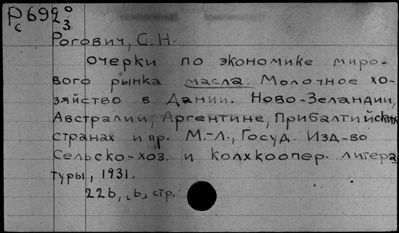 Р692⁰
с 3
Рогович, С. Н.
Очерки по экономике миро-
вого рынка масла. Молочное хо-
зяйство в Дании. Ново-Зеландии,
Австралии, Аргентине, Прибалтийских
странах и пр. М.-Л., Госуд. Изд-во
Сельско-хоз. и колхкоопер. литера
туры, 1931.
226, "Ь" стр.